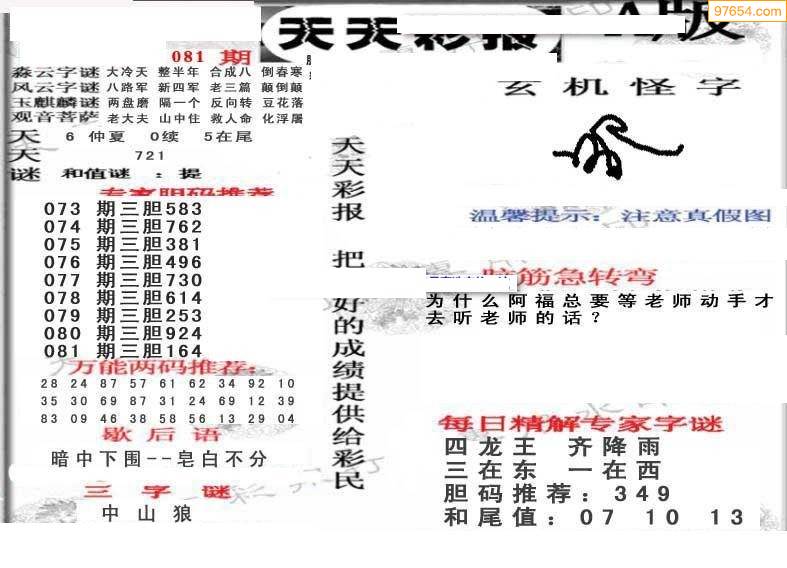 97654.com
天天彩报 A版
081 期
森云字谜 大冷天 整半年 合成八 倒春寒
风云字谜 八路军 新四军 老三篇 颠倒颠
玉麒麟谜 两盘磨 隔一个 反向转 豆花落
观音菩萨 老大夫 山中住 救人命 化浮屠
天 6 仲夏 0续 5在尾
天 721
谜 和值谜 : 提
专家胆码推荐
073 期三胆583
074 期三胆762
075 期三胆381
076 期三胆496
077 期三胆730
078 期三胆614
079 期三胆253
080 期三胆924
081 期三胆164
万能两码推荐:
28 24 87 57 61 62 34 92 10
35 30 69 87 31 24 69 12 39
83 09 46 38 58 56 13 29 04
歇后语
暗中下围--皂白不分
三字谜
中山狼
天天彩报 把好的成绩提供给彩民
玄机怪字
温馨提示: 注意真假图
脑筋急转弯
为什么阿福总要等老师动手才
去听老师的话?
每日精解专家字谜
四龙王 齐降雨
三在东 一在西
胆码推荐: 349
和尾值: 07 10 13